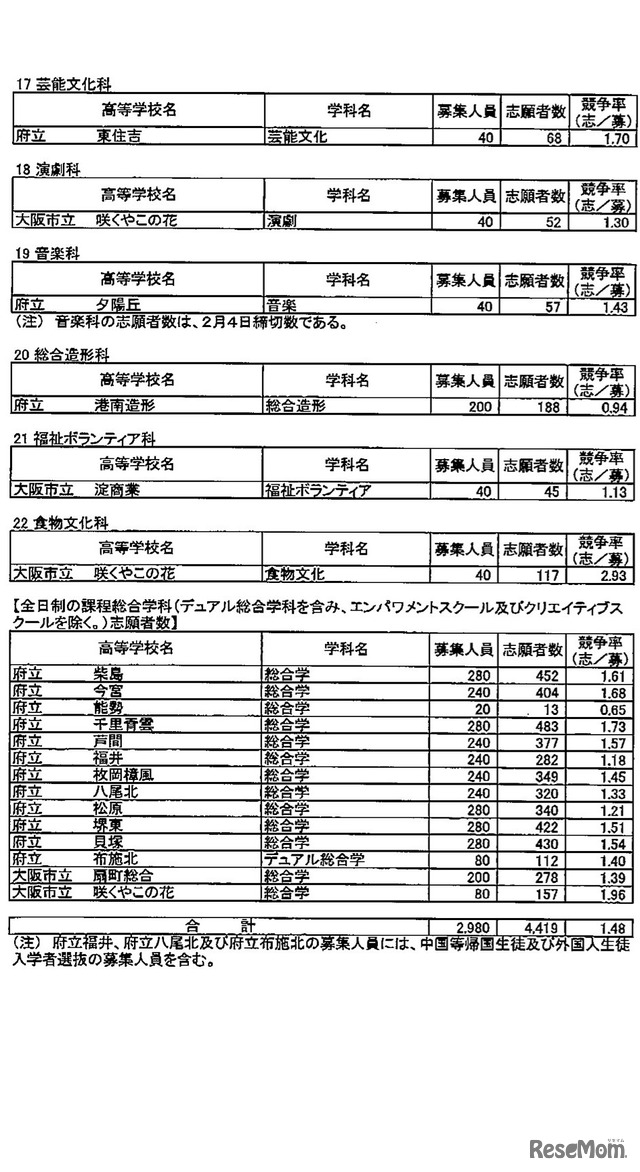 17 芸能文化科
高等学校名 学科名 募集人員 志願者数 競争率(志／募)
府立 東住吉 芸能文化 40 68 1.70
18 演劇科
高等学校名 学科名 募集人員 志願者数 競争率(志／募)
大阪市立 咲くやこの花 演劇 40 52 1.30
19 音楽科
高等学校名 学科名 募集人員 志願者数 競争率(志／募)
府立 夕陽丘 音楽 40 57 1.43
(注) 音楽科の志願者数は、2月4日締切数である。
20 総合造形科
高等学校名 学科名 募集人員 志願者数 競争率(志／募)
府立 港南造形 総合造形 200 188 0.94
21 福祉ボランティア科
高等学校名 学科名 募集人員 志願者数 競争率(志／募)
大阪市立 淀商業 福祉ボランティア 40 45 1.13
22 食物文化科
高等学校名 学科名 募集人員 志願者数 競争率(志／募)
大阪市立 咲くやこの花 食物文化 40 117 2.93
【全日制の課程総合学科(デュアル総合学科を含み、エンパワメントスクール及びクリエイティブス
クールを除く。)志願者数】
高等学校名 学科名 募集人員 志願者数 競争率(志／募)
府立 柴島 総合学 280 452 1.61
府立 今宮 総合学 240 404 1.68
府立 能勢 総合学 20 13 0.65
府立 千里青雲 総合学 280 483 1.73
府立 芦間 総合学 240 377 1.57
府立 福井 総合学 240 282 1.18
府立 枚岡樟風 総合学 240 349 1.45
府立 八尾北 総合学 240 320 1.33
府立 松原 総合学 280 340 1.21
府立 堺東 総合学 280 422 1.51
府立 貝塚 総合学 280 430 1.54
府立 布施北 デュアル総合学 80 112 1.40
大阪市立 扇町総合 総合学 200 278 1.39
大阪市立 咲くやこの花 総合学 80 157 1.96
合計 2,980 4,419 1.48
(注) 府立福井、府立八尾北及び府立布施北の募集人員には、中国等帰国生徒及び外国人生徒
入学者選抜の募集人員を含む。
リセマム
ReseMom.